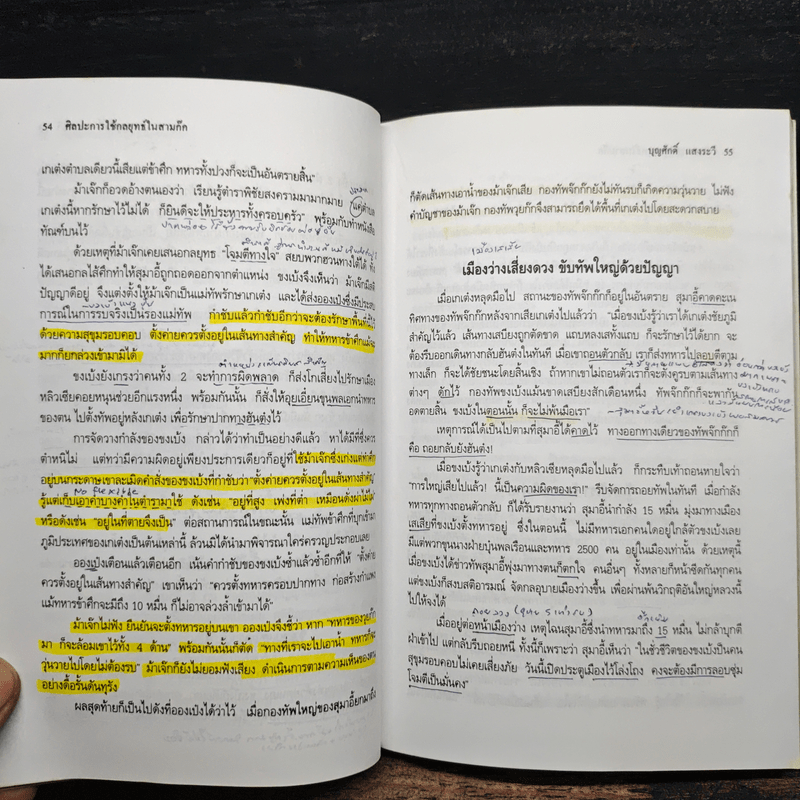 54 ศิลปะการใช้กลยุทธ์ในสามก๊ก
เกเต๋งตำบลเดียวนี้เสียแต่ข้าศึก ทหารทั้งปวงก็จะเป็นอันตรายสิ้น"
ม้าเจ๊กก็อวดอ้างตนเองว่า เรียนรู้ตำราพิชัยสงครามมามากมาย แค่ตำบล
เกเต๋งนี้หากรักษาไว้ไม่ได้ ก็ยินดีจะให้ประหารทั้งครอบครัว" พร้อมกับทำหนังสือ
ทัณฑ์บนไว้
ด้วยเหตุที่ม้าเจ๊กเคยเสนอกลยุทธ "โจมตีทางใจ" สยบพวกฮวนทางใต้ได้ ทั้ง
ได้เสนอกลไส้ศึกทำให้สุมาอี้ถูกถอดออกจากตำแหน่ง ขงเบ้งจึงเห็นว่า ม้าเจ๊กมีสติ
ปัญญาดีอยู่ จึงแต่งตั้งให้ม้าเจ๊กเป็นแม่ทัพรักษาเกเต๋ง และได้ส่งอองเป๋งซึ่งมีประสบ
การณ์ในการรบจริงเป็นรองแม่ทัพ กำชับแล้วกำชับอีกว่าจะต้องรักษาพื้นที่ไว้
ด้วยความสุขุมรอบคอบ ตั้งค่ายควรตั้งอยู่ในเส้นทางสำคัญ ทำให้ทหารข้าศึกแม้จะ
มากก็ยกล่วงเข้ามามิได้
ขงเบ้งยังเกรงว่าคนทั้ง 2 จะทำการผิดพลาด ก็สั่งโกเสียงไปรักษาเมือง
หลิวเซียคอยหนุนช่วยอีกแรงหนึ่ง พร้อมกันนั้น ก็สั่งให้อุยเอี๋ยนขุนพลเอกนำทหาร
ของตน ไปตั้งทัพอยู่หลังเกเต๋ง เพื่อรักษาปากทางฮันต๋งไว้
การจัดวางกำลังของขงเบ้ง กล่าวได้ว่าทำเป็นอย่างดีแล้ว หาได้มีที่ซึ่งควร
ตำหนิไม่ แต่ทว่ามีความผิดอยู่เพียงประการเดียวก็อยู่ที่ใช้ม้าเจ๊กซึ่งเก่งแต่ทำศึก
อยู่บนกระดาษเขาละเมิดคำสั่งของขงเบ้งที่กำชับว่า "ตั้งค่ายควรตั้งอยู่ในเส้นทางสำคัญ"
No flexible
รู้แต่เก็บเอาคำบางคำในตำรามาใช้ ดังเช่น "อยู่ที่สูง เพ่งที่ต่ำ เหมือนดังผ่าไม้ไผ่"
หรือดังเช่น "อยู่ในที่ตายจึงเป็น" ต่อสถานการณ์ในขณะนั้น แม่ทัพข้าศึกที่บุกเข้ามา
ภูมิประเทศของเกเต๋งเป็นต้นเหล่านี้ ล้วนมิได้นำมาพิจารณาใคร่ครวญประกอบเลย
อองเป๋งเตือนแล้วเตือนอีก เน้นคำกำชับของขงเบ้งซ้ำแล้วซ้ำอีกที่ให้ "ตั้งค่าย
ควรตั้งอยู่ในเส้นทางสำคัญ" เขาเห็นว่า "ควรตั้งทหารครอบปากทาง ก่อสร้างกำแพง
แม้ทหารข้าศึกจะมีถึง 10 หมื่น ก็ไม่อาจล่วงล้ำเข้ามาได้"
ม้าเจ๊กไม่ฟัง ยืนยันจะตั้งทหารอยู่บนเขา อองเป๋งจึงชี้ว่า หาก "ทหารของวุยก๊ก
มา ก็จะล้อมเขาไว้ทั้ง 4 ด้าน" พร้อมกันนั้นก็ตัด "ทางที่เราจะไปเอาน้ำ ทหารก็จะ
วุ่นวายไปโดยไม่ต้องรบ" ม้าเจ๊กก็ยังไม่ยอมฟังเสียง ดำเนินการตามความเห็นของตน
อย่างดื้อรั้นดันทุรัง
ผลสุดท้ายก็เป็นไปดังที่อองเป๋งได้ว่าไว้ เมื่อกองทัพใหญ่ของสุมาอี้ยกมาถึง
บุญศักดิ์ แสงระวี 55
ก็ตัดเส้นทางเอาน้ำของม้าเจ๊กเสีย กองทัพจ๊กก๊กยังไม่ทันรบก็เกิดความวุ่นวาย ไม่ฟัง
คำบัญชาของม้าเจ๊ก กองทัพวุยก๊กจึงสามารถยึดได้พื้นที่เกเต๋งไปโดยสะดวกสบาย
เมืองเสเสีย
เมืองว่างเสี่ยงดวง ขับทัพใหญ่ด้วยปัญญา
เมื่อเกเต๋งหลุดมือไป สถานะของทัพจ๊กก๊กก็อยู่ในอันตราย สุมาอี้คาดคะเน
ทิศทางของทัพจ๊กก๊กหลังจากเสียเกเต๋งไปแล้วว่า "เมื่อขงเบ้งรู้ว่าเราได้เกเต๋งชัยภูมิ
สำคัญไว้แล้ว เส้นทางเสบียงก็ถูกตัดขาด แถบหลงเสทั้งแถบ ก็จะรักษาไว้ได้ยาก จะ
ต้องรีบถอยออกเดินทางกลับฮันต๋งในทันที เมื่อเขาถอนตัวกลับ เราก็ส่งทหารไปลอบตีตาม
ทางเล็ก ก็จะได้ชัยชนะโดยสิ้นเชิง ถ้าหากเขาไม่ถอนตัวเราก็จะตั้งครบตามเส้นทาง
ต่างๆ ดักไว้ กองทัพขงเบ้งแม้นขาดเสบียงสักเดือนหนึ่ง ทหารจ๊กก๊กก็จะพากัน
อดตายสิ้น ขงเบ้งในตอนนั้น ก็จะไม่พ้นมือเรา"
เหตุการณ์ได้เป็นไปตามที่สุมาอี้ได้คาดไว้ ทางออกทางเดียวของทัพจ๊กก๊กก็
คือ ถอยกลับยังฮันต๋ง!
เมื่อขงเบ้งรู้ว่าเกเต๋งกับหลิวเซียหลุดมือไปแล้ว ก็กระทืบเท้าถอนหายใจว่า
"การใหญ่เสียไปแล้ว! นี้เป็นความผิดของเรา!" รีบจัดการถอยทัพในทันที เมื่อกำลัง
ทหารทุกทางถอนตัวกลับ ก็ได้รับรายงานว่า สุมาอี้นำกำลัง 15 หมื่น มุ่งมาทางเมือง
เสเสียที่ขงเบ้งตั้งทหารอยู่ ซึ่งในตอนนี้ ไม่มีทหารเอกคนใดอยู่ใกล้ตัวขงเบ้งเลย
มีแต่พวกขุนนางฝ่ายบุ๋นพลเรือนและทหาร 2500 คน อยู่ในเมืองเท่านั้น ด้วยเหตุนี้
เมื่อขงเบ้งได้ข่าวทัพสุมาอี้พุ่งมาทางตนก็ตกใจ คนอื่นๆ ทั้งหลายก็หน้าซีดกันทุกคน
แต่ขงเบ้งก็สงบสติอารมณ์ จัดกลอุบายเมืองว่างขึ้น เพื่อผ่านพ้นวิกฤติอันใหญ่หลวงนี้
ไปให้จงได้
เมื่ออยู่ต่อหน้าเมืองว่าง เหตุไฉนสุมาอี้ซึ่งนำทหารมาถึง 15 หมื่น ไม่กล้าบุกตี
ฝ่าเข้าไป แต่กลับรีบถอยหนี ทั้งนี้ก็เพราะว่า สุมาอี้เห็นว่า "ในชั่วชีวิตของขงเบ้งเป็นคน
สุขุมรอบคอบไม่เคยเสี่ยงภัย วันนี้เปิดประตูเมืองไว้โล่งโถง คงจะต้องมีการลอบซุ่ม
โจมตีเป็นมั่นคง"